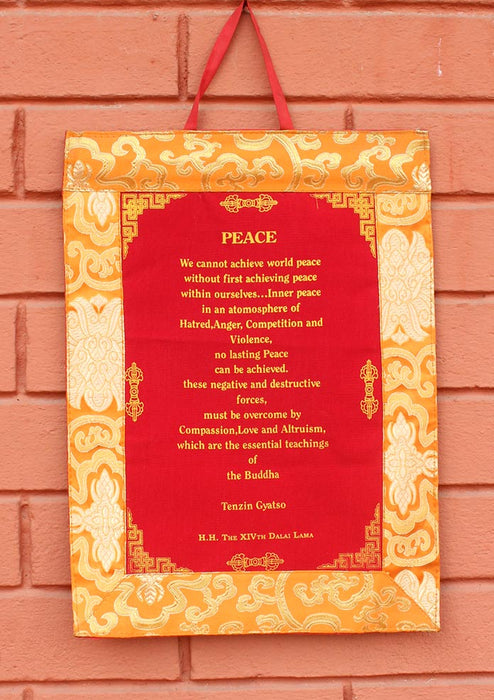 PEACE
We cannot achieve world peace
without first achieving peace
within ourselves...Inner peace
in an atomosphere of
Hatred,Anger, Competition and
Violence,
no lasting Peace
can be achieved.
these negative and destructive
forces,
must be overcome by
Compassion,Love and Altruism,
which are the essential teachings
of
the Buddha
Tenzin Gyatso
H.H. The XIVth Dalai Lama